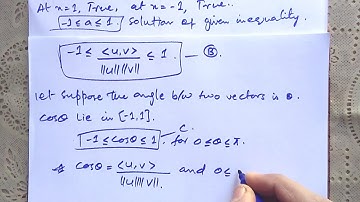 At x=1, True, at x=-1, True.
-1≤a≤1 solution of given inequality.
-1 ≤ <u,v> / ||u|| ||v|| ≤ 1. B
Let suppose the angle b/w two vectors is θ.
cosθ lie in [-1,1].
C.
-1 ≤ cosθ ≤ 1. for 0≤θ≤π.
cosθ = <u,v> / ||u|| ||v||. and 0≤